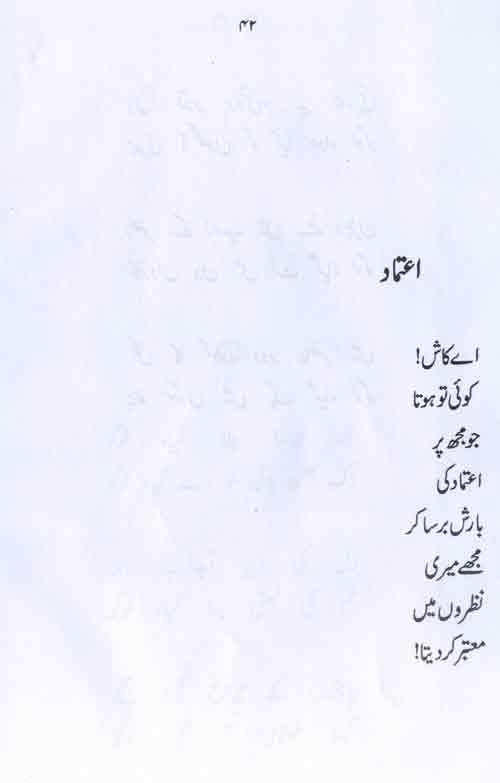 ۴۲
اعتماد
اے کاش!
کوئی تو ہوتا
جو مجھ پر
اعتماد کی
بارش برسا کر
مجھے میری
نظروں میں
معتبر کر دیتا!